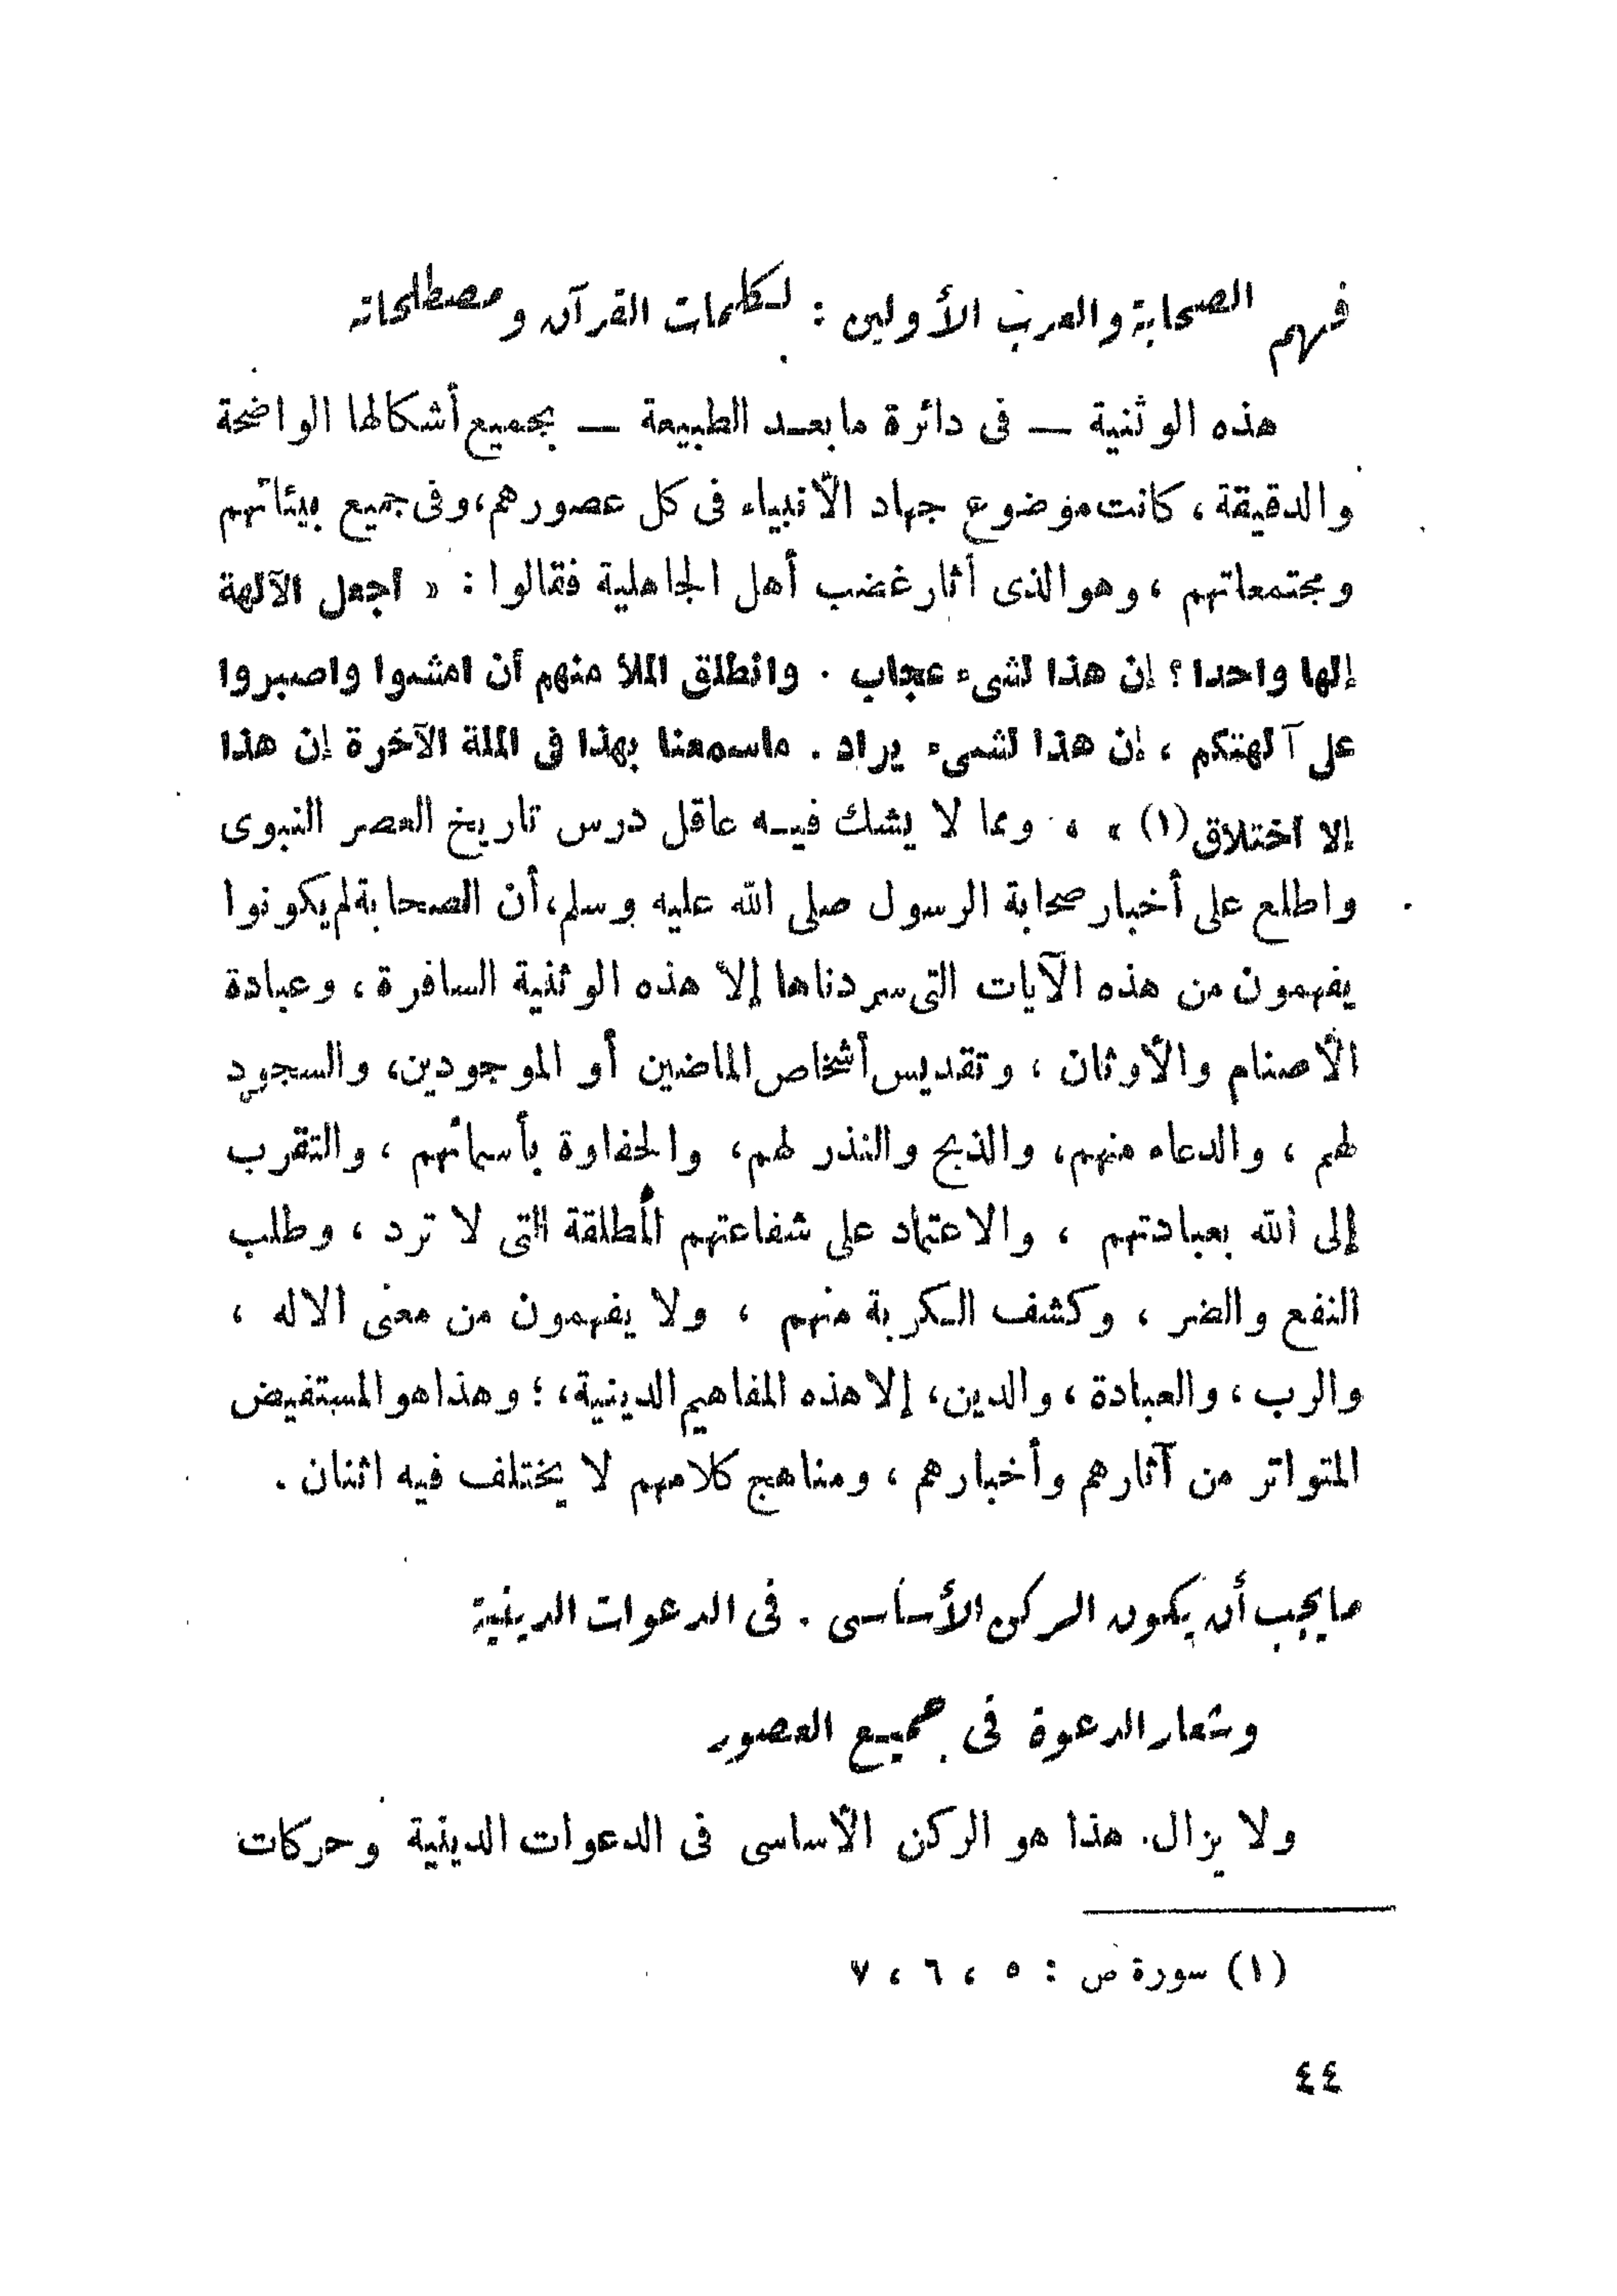 فهم الصحابة والعرب الأولين : لكلمات القرآن ومصطلحاته
هذه الوثنية — فى دائرة ما بعد الطبيعة — بجميع أشكالها الواضحة
والدقيقة ، كانت موضوع جهاد الأنبياء فى كل عصورهم ، وفى جميع بيئاتهم
ومجتمعاتهم ، وهو الذى أثار غضب أهل الجاهلية فقالوا : « أجعل الآلهة
إلها واحدا ؟ إن هذا لشىء عجاب . وانطلق الملأ منهم أن امشوا واصبروا
على آلهتكم ، إن هذا لشىء يراد . ماسمعنا بهذا فى الملة الآخرة إن هذا
إلا اختلاق (١) » ، ومما لا يشك فيه عاقل درس تاريخ العصر النبوى
واطلع على أخبار صحابة الرسول صلى الله عليه وسلم ، أن الصحابة لم يكونوا
يفهمون من هذه الآيات التى سردناها إلا هذه الوثنية السافرة ، وعبادة
الأصنام والأوثان ، وتقديس أشخاص الماضين أو الموجودين ، والسجود
لهم ، والدعاء منهم ، والذبح والنذر لهم ، والحفاوة بأسمائهم ، والتقرب
إلى الله بعبادتهم ، والاعتماد على شفاعتهم المطلقة التى لا ترد ، وطلب
النفع والضر ، وكشف الكربة منهم ، ولا يفهمون من معنى الاله ،
والرب ، والعبادة ، والدين ، إلا هذه المفاهيم الدينية ، ؛ وهذا هو المستفيض
المتواتر من آثارهم وأخبارهم ، ومناهج كلامهم لا يختلف فيه اثنان .
ما يجب أن يكون الركن الأساسى . فى الدعوات الدينية
وشعار الدعوة فى جميع العصور
ولا يزال . هذا هو الركن الأساسى فى الدعوات الدينية وحركات
(١) سورة ص : ٥ ، ٦ ، ٧
٤٤